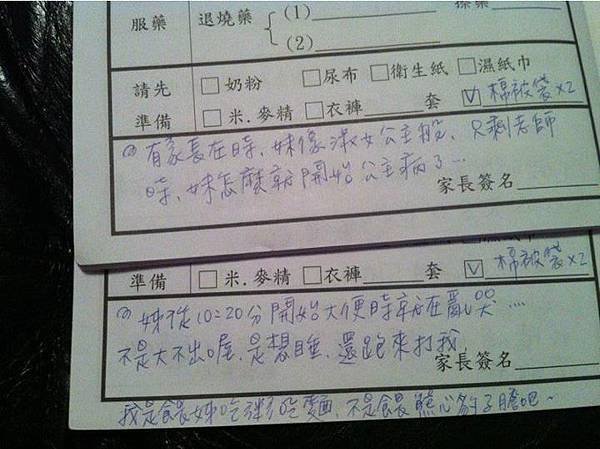 服藥 退燒藥 (1)
(2)
請先 □奶粉 □尿布 □衛生紙 □濕紙巾
準備 □米.麥精 □衣褲 套 ☑棉被袋×2
有家長在時,妹像淑女公主般,只剩老師
時,妹怎麼就開始公主病了…
家長簽名
準備 □米.麥精 □衣褲 套 ☑棉被袋×2
妹從10:20分開始大便時就在亂哭….
不是大不出喔,是想睡,還跑來打我,
家長簽名
我是餵妹吃粥吃麵,不是餵熊心豹子膽吧~